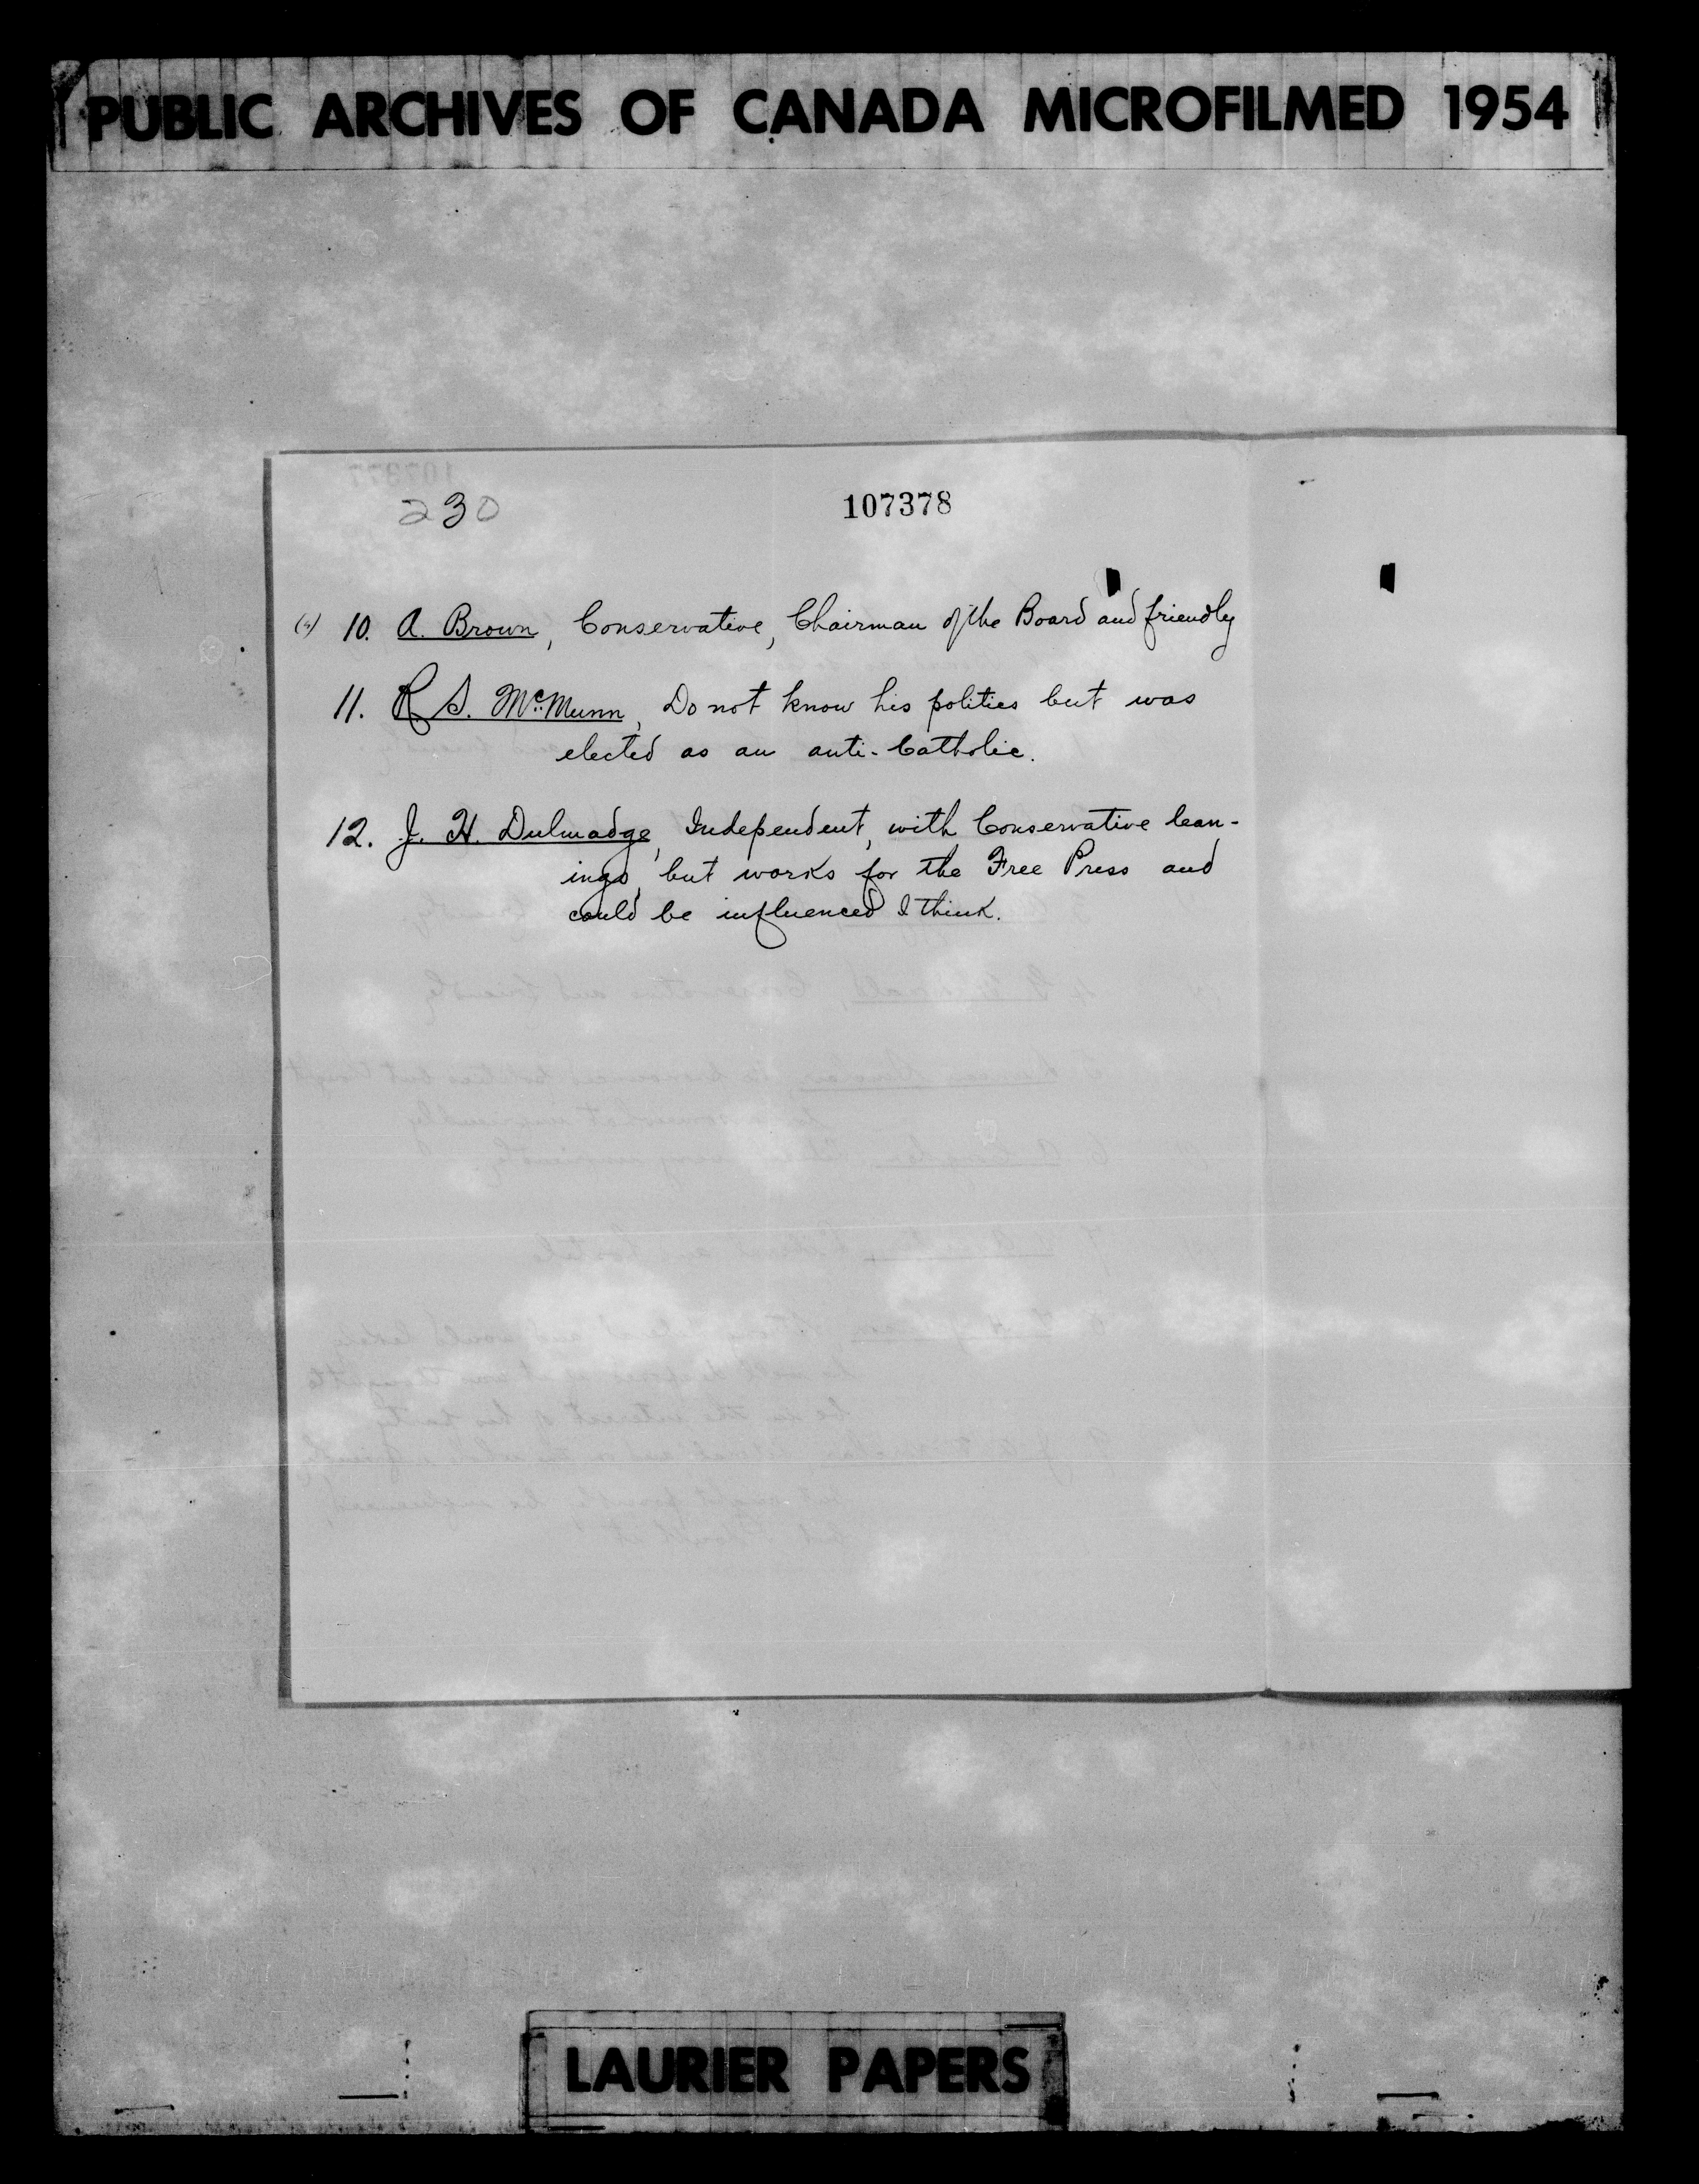 PUBLIC ARCHIVES OF CANADA MICROFILMED 1954
230
107378
(4) 10. A. Brown, Conservative, Chairman of the Board and friendly
11. R S. McMunn, Do not know his politics but was
elected as an anti-Catholic.
12. J. H. Dulmadge, Independent, with Conservative lean-
ings, but works for the Free Press and
could be influenced I think.
LAURIER PAPERS